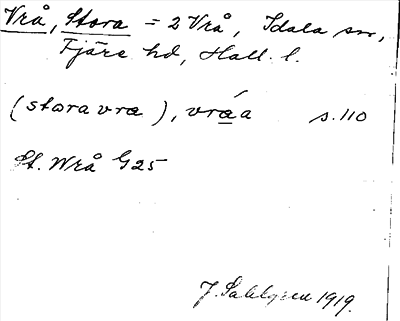 Vrå, Stora = 2 Vrå, Idala sn,
Fjäre hd, Hall. l.
(stora vra), vráa s. 110
St. Wrå G 25
J. Sahlgren 1919.